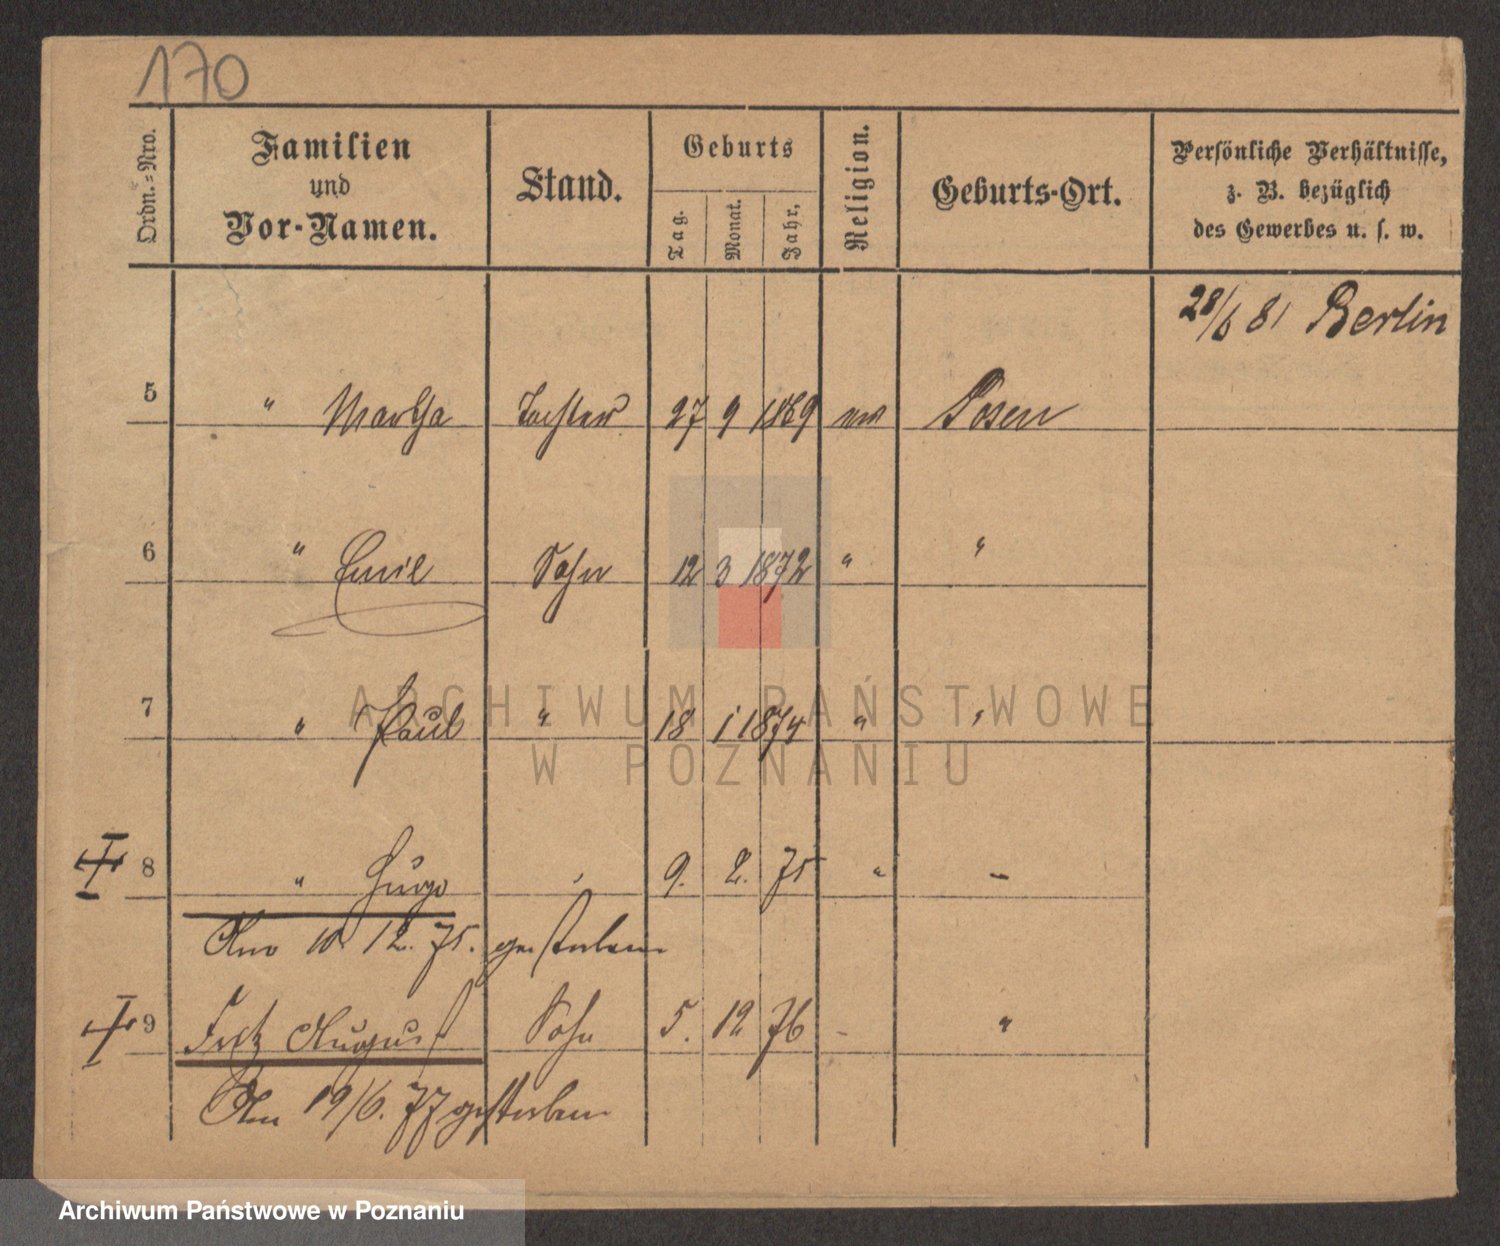 170
Ordn.-Nro.
Familien
und
Vor-Namen.
Stand.
Geburts
Tag.
Monat.
Jahr.
Religion.
Geburts-Ort.
Persönliche Verhältnisse,
z. B. bezüglich
des Gewerbes u. s. w.
28/6 81 Berlin
5 " Martha Tochter 27 9 1869 ev Posen
6 " Emil Sohn 12 3 1872 " "
7 " Paul " 18 1 1874 " "
8 " Hugo " 9. 2. 75 " -
Am 10. 12. 75. gestorben
9 Fritz August Sohn 5. 12 76 - "
Am 19/6. 77 gestorben
ARCHIWUM PAŃSTWOWE
W POZNANIU
Archiwum Państwowe w Poznaniu